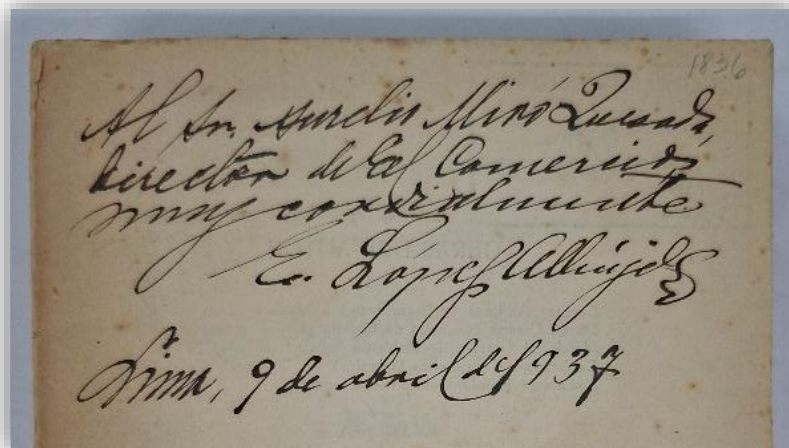 1836
Al Sr. Aurelio Miró Quesada,
Director de "El Comercio,
muy cordialmente
E. López Albújar
Lima, 9 de abril de 1937